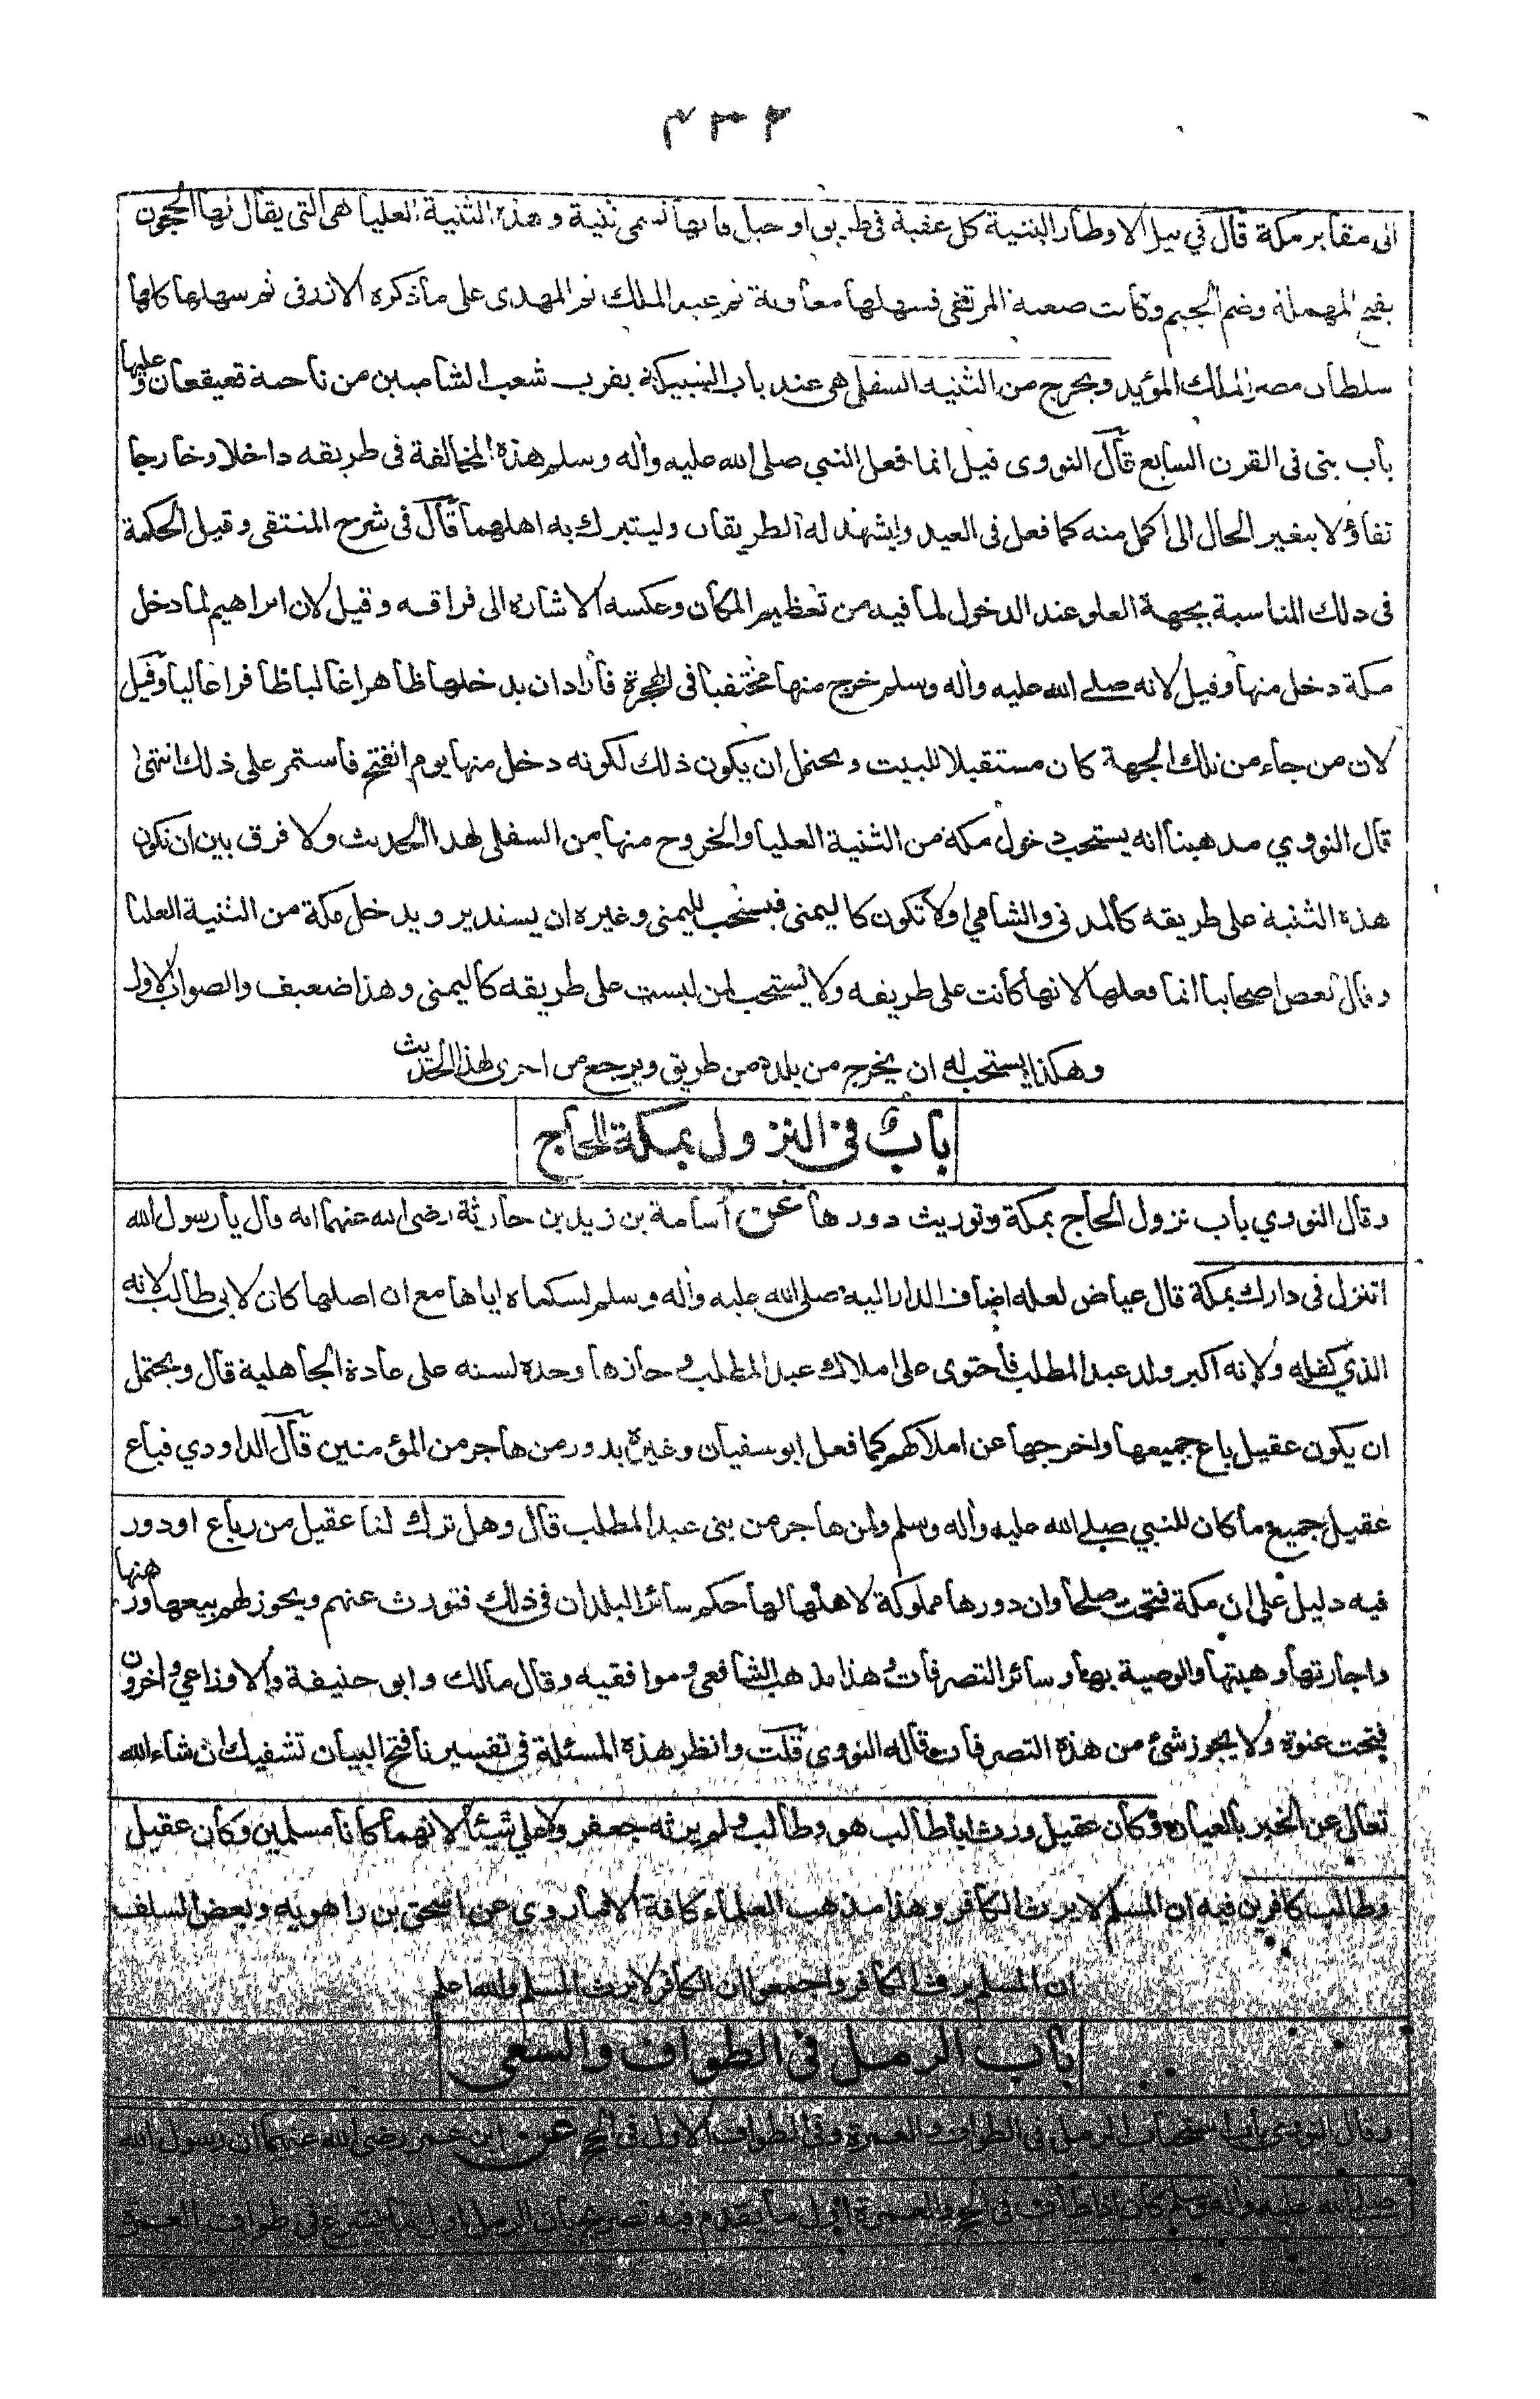 ٤٣٢
الى مقابر مكة قال في نيل الاوطار الثنية كل عقبة فى طريق او جبل فانها تسمى ثنية وهذه الثنية العليا هى التى يقال لها الحجون
بفتح المهملة وضم الجيم وكانت صعبة المرتقى فسهلها معاوية ثم عبد الملك ثم المهدى على ما ذكره الازرقى ثم سهلها كلها
سلطان مصر الملك المؤيد ويخرج من الثنية السفلى هى عند باب الشبيكة بقرب شعب الشاميين من ناحية قعيقعان وعليها
باب بنى فى القرن السابع قال النووى قيل انما فعل النبي صلى الله عليه واله وسلم هذه المخالفة فى طريقه داخلا وخارجا
تفاؤلا بتغير الحال الى اكمل منه كما فعل فى العيد وليشهد له الطريقان وليتبرك به اهلهما قال فى شرح المنتقى وقيل الحكمة
فى ذلك المناسبة بجهة العلو عند الدخول لما فيه من تعظيم المكان وعكسه الاشارة الى فراقه وقيل لان ابراهيم لما دخل
مكة دخل منها وقيل لانه صلى الله عليه واله وسلم خرج منها مختفيا فى الهجرة فاراد ان يدخلها ظاهرا غالبا ظافرا غالبا وقيل
لان من جاء من تلك الجهة كان مستقبلا للبيت ويحتمل ان يكون ذلك لكونه دخل منها يوم الفتح فاستمر على ذلك انتهى
قال النووي مذهبنا انه يستحب دخول مكة من الثنية العليا والخروج منها من السفلى لهذا الحديث ولا فرق بين ان تكون
هذه الثنية على طريقه كالمدنى والشامي او لا تكون كاليمنى فيستحب لليمنى وغيره ان يستدير ويدخل مكة من الثنية العليا
وقال بعض اصحابنا انما فعلها لانها كانت على طريقه ولا يستحب لمن ليست على طريقه كاليمنى وهذا ضعيف والصواب الاول
وهكذا يستحب له ان يخرج من بلده من طريق ويرجع من اخرى لهذا الحديث
باب فى النزول بمكة للحاج
وقال النووي باب نزول الحاج بمكة وتوريث دورها عن أسامة بن زيد بن حارثة رضى الله عنهما انه قال يا رسول الله
اتنزل فى دارك بمكة قال عياض لعله اضاف الدار اليه صلى الله عليه واله وسلم لسكناه اياها مع ان اصلها كان لابى طالب لانه
الذي كفله ولانه اكبر ولد عبد المطلب فاحتوى على املاك عبد المطلب وحازها وحده لسنه على عادة الجاهلية قال ويحتمل
ان يكون عقيل باع جميعها واخرجها عن املاكهم كما فعل ابو سفيان وغيره بدور من هاجر من المؤمنين قال الداودي فباع
عقيل جميع ما كان للنبي صلى الله عليه واله وسلم ولمن هاجر من بنى عبد المطلب قال وهل ترك لنا عقيل من رباع او دور
فيه دليل على ان مكة فتحت صلحا وان دورها مملوكة لاهلها لها حكم سائر البلدان فى ذلك فتورث عنهم ويجوز لهم بيعها ورهنها
واجارتها وهبتها والوصية بها وسائر التصرفات وهذا مذهب الشافعى وموافقيه وقال مالك وابو حنيفة والاوزاعي واخرون
فتحت عنوة ولا يجوز شئ من هذه التصرفات وقاله النووى قلت وانظر هذه المسئلة فى تفسيرنا فتح البيان تشفيك ان شاء الله
تعالى عن الخبر بالعيان وكان عقيل ورث ابا طالب هو وطالب ولم يرثه جعفر ولا علي شيئا لانهما كانا مسلمين وكان عقيل
وطالب كافرين فيه ان المسلم لا يرث الكافر وهذا مذهب العلماء كافة الا ما روي عن اسحق بن راهويه وبعض السلف
ان المسلم يرث الكافر واجمعوا ان الكافر لا يرث المسلم والله اعلم
باب الرمل فى الطواف والسعى
وقال النووى باب استحباب الرمل فى الطواف والعمرة وفى الطواف الاول فى الحج عن ابن عمر رضى الله عنهما ان رسول الله
صلى الله عليه واله وسلم كان اذا طاف فى الحج والعمرة اول ما يقدم فيه تصريح بان الرمل اول ما يشرع فى طواف العمرة